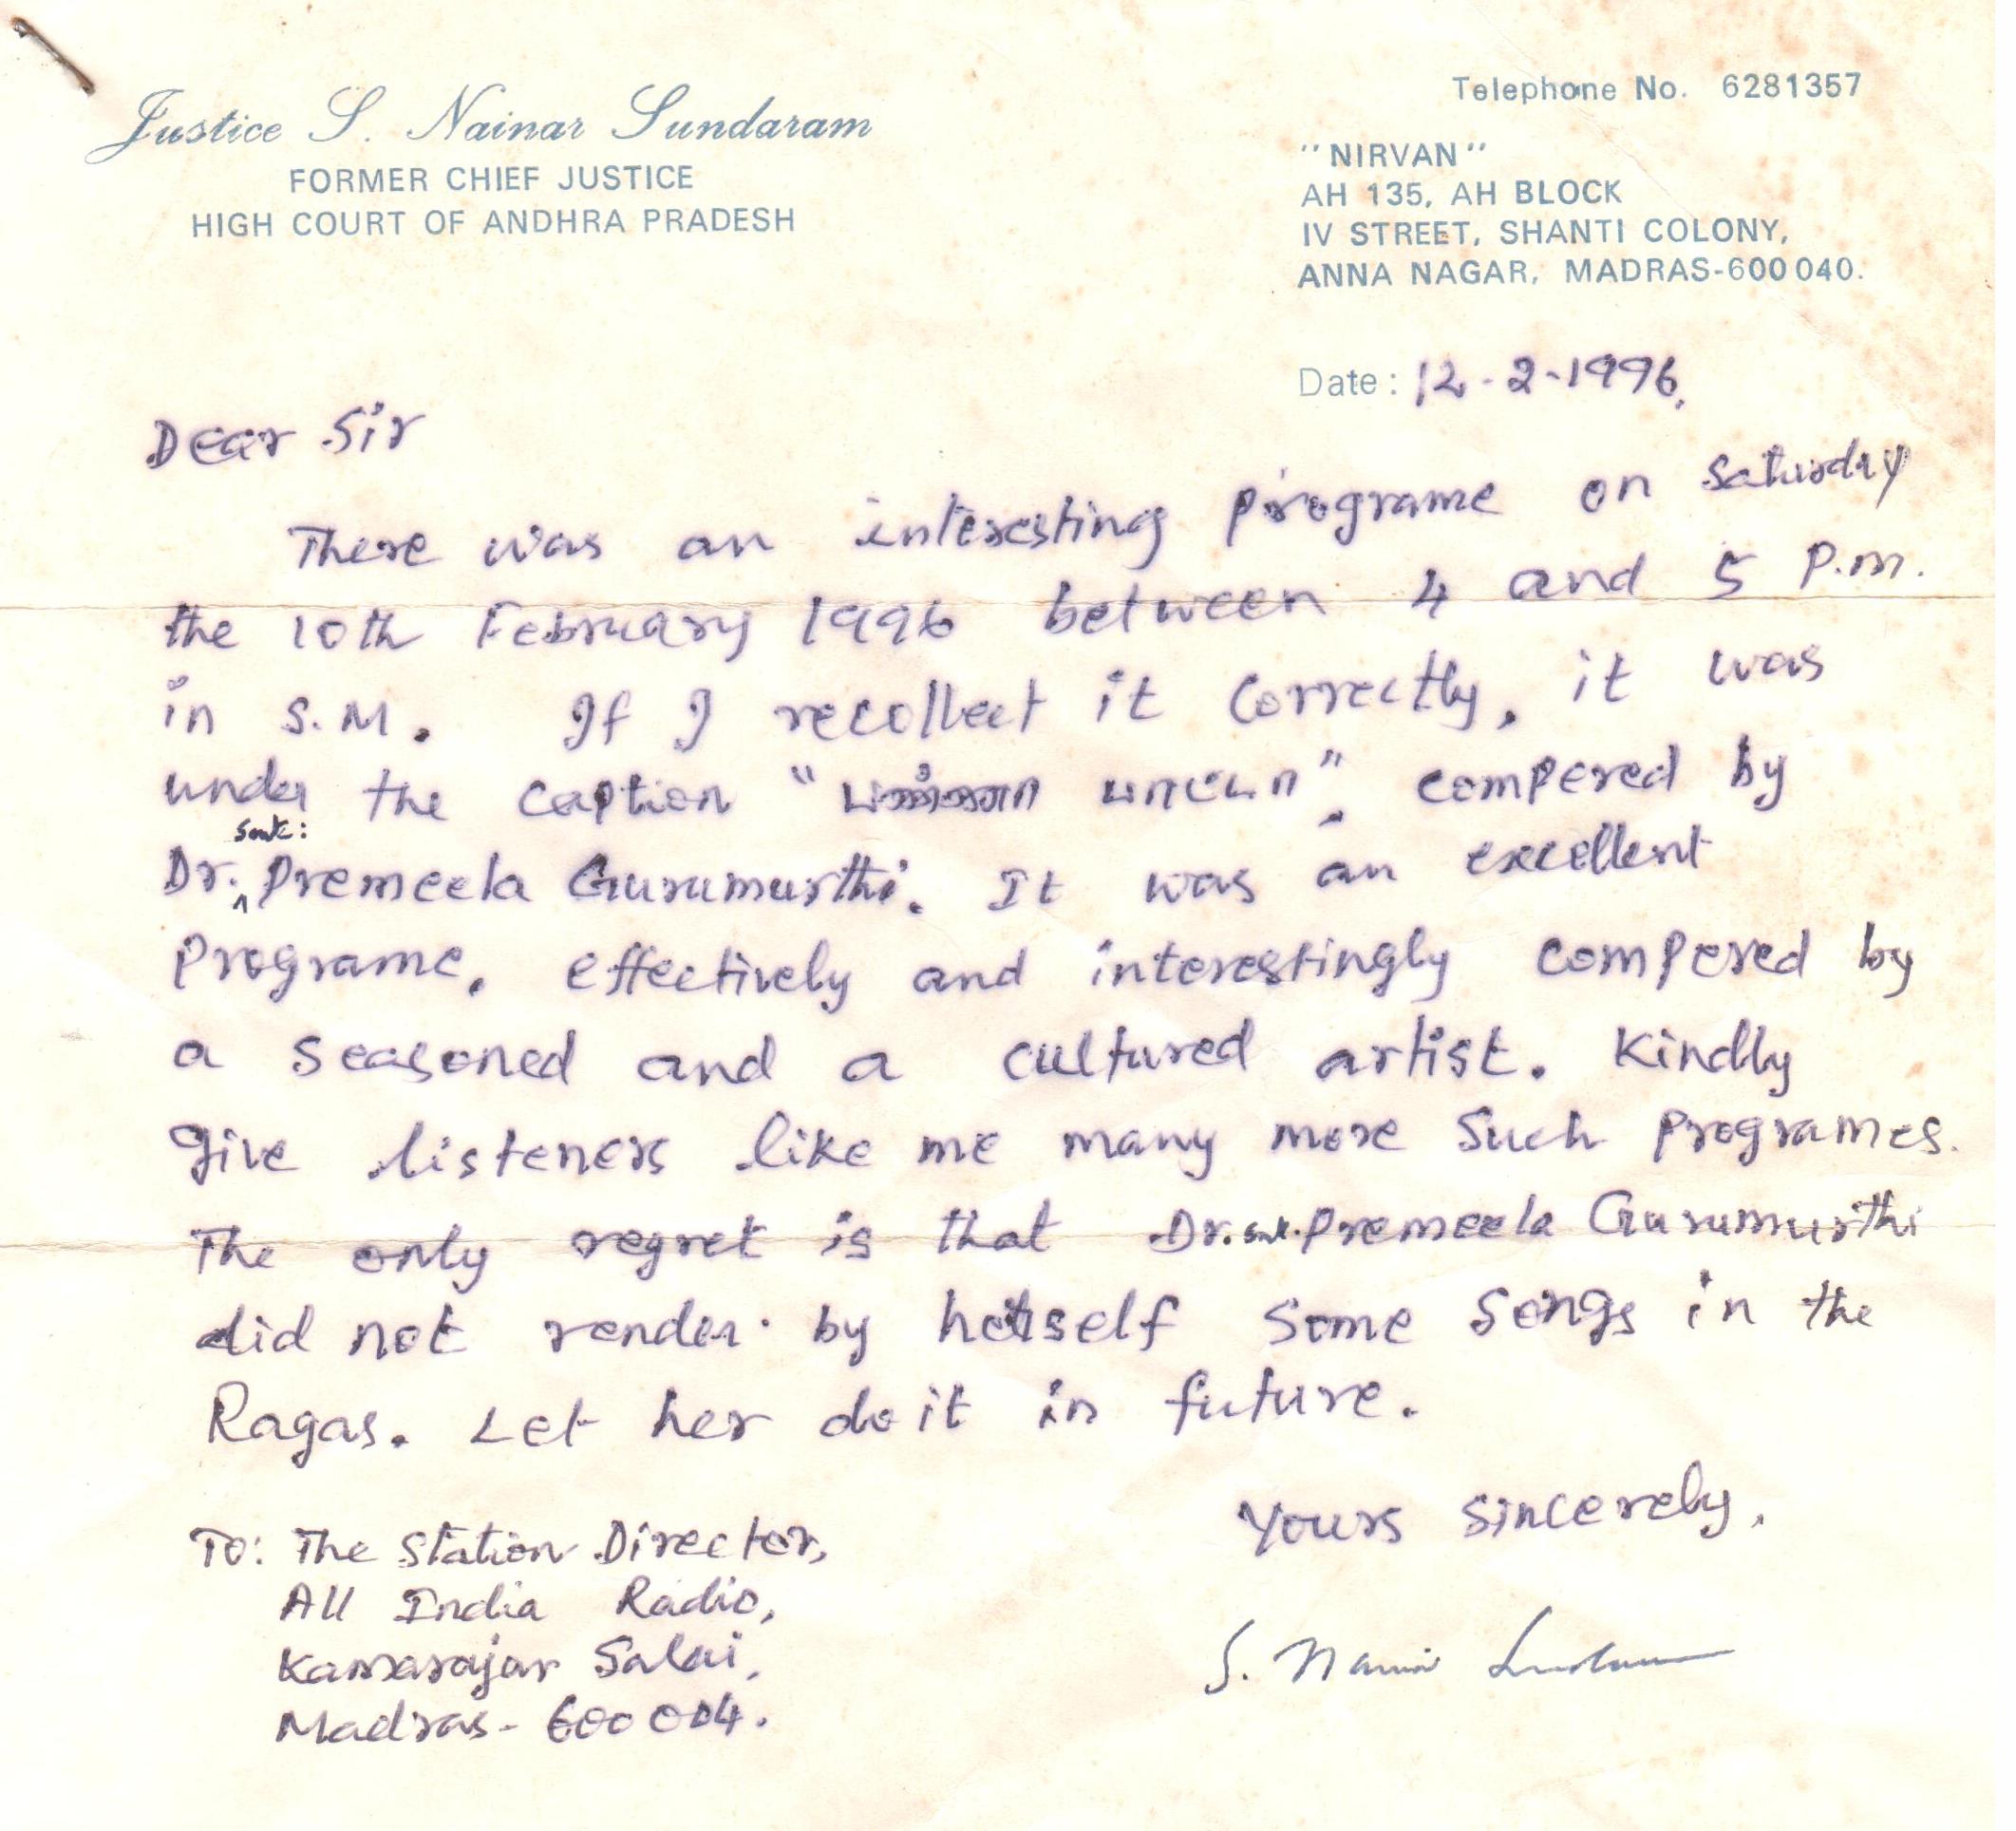 Justice S. Nainar Sundaram
FORMER CHIEF JUSTICE
HIGH COURT OF ANDHRA PRADESH
Telephone No. 6281357
"NIRVAN"
AH 135, AH BLOCK
IV STREET, SHANTI COLONY,
ANNA NAGAR, MADRAS-600 040.
Date: 12-2-1996.
Dear Sir
There was an interesting programe on Saturday
the 10th February 1996 between 4 and 5 P.m.
in S.M. If I recollect it correctly, it was
under the caption " பாட்டா", compered by
Smt:
Dr. Premeela Gurumurthi. It was an excellent
Programe, effectively and interestingly compered by
a seasoned and a cultured artist. Kindly
give listeners like me many more such programes.
The only regret is that Dr. Smt. Premeela Gurumurthi
did not render by herself some songs in the
Ragas. Let her do it in future.
Yours sincerely,
S. Nainar Sundaram
To: The Station Director,
All India Radio,
Kamarajar Salai,
Madras - 600 004.